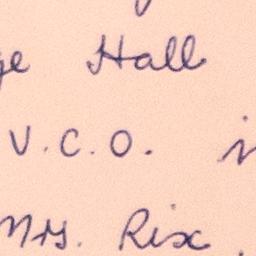 ge Hall
V.C.O. i
Mrs. Rix.